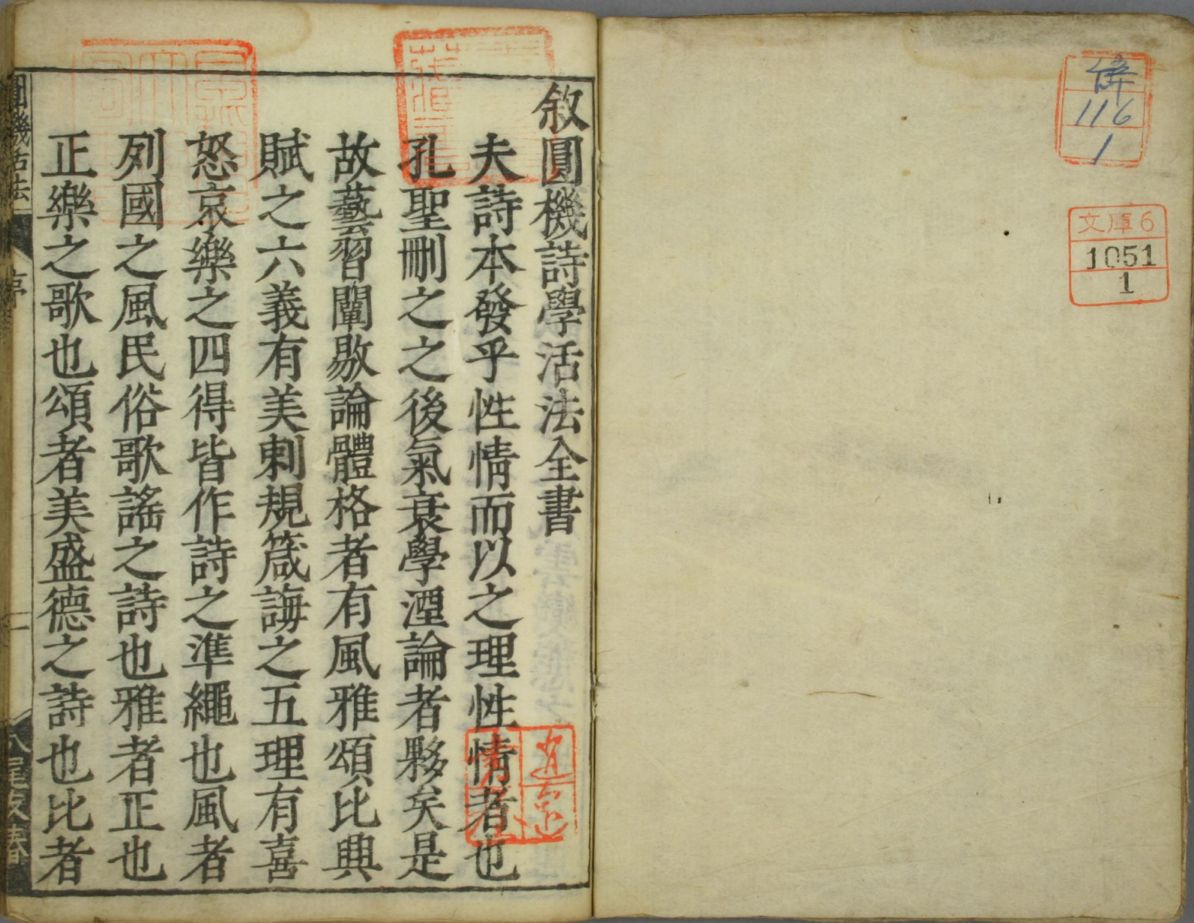 敘圓機詩學活法全書
夫詩本發乎性情而以之理性情者也
孔聖刪之之後氣衰學湮論者夥矣是
故藝習闡敭論體格者有風雅頌比興
賦之六義有美刺規箴誨之五理有喜
怒哀樂之四得皆作詩之準繩也風者
列國之風民俗歌謠之詩也雅者正也
正樂之歌也頌者美盛德之詩也比者
圓機活法
序
一
八尾友春
116
1
文庫6
1051
1